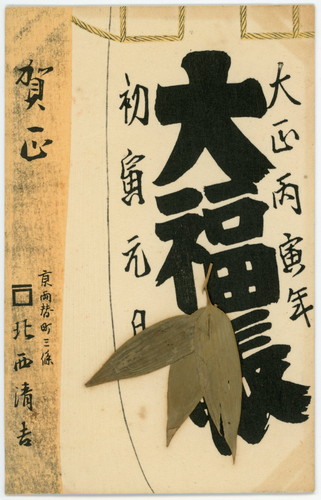 大正丙寅年
大福帳
初寅元日
賀正
京両替町三條
北西清吉